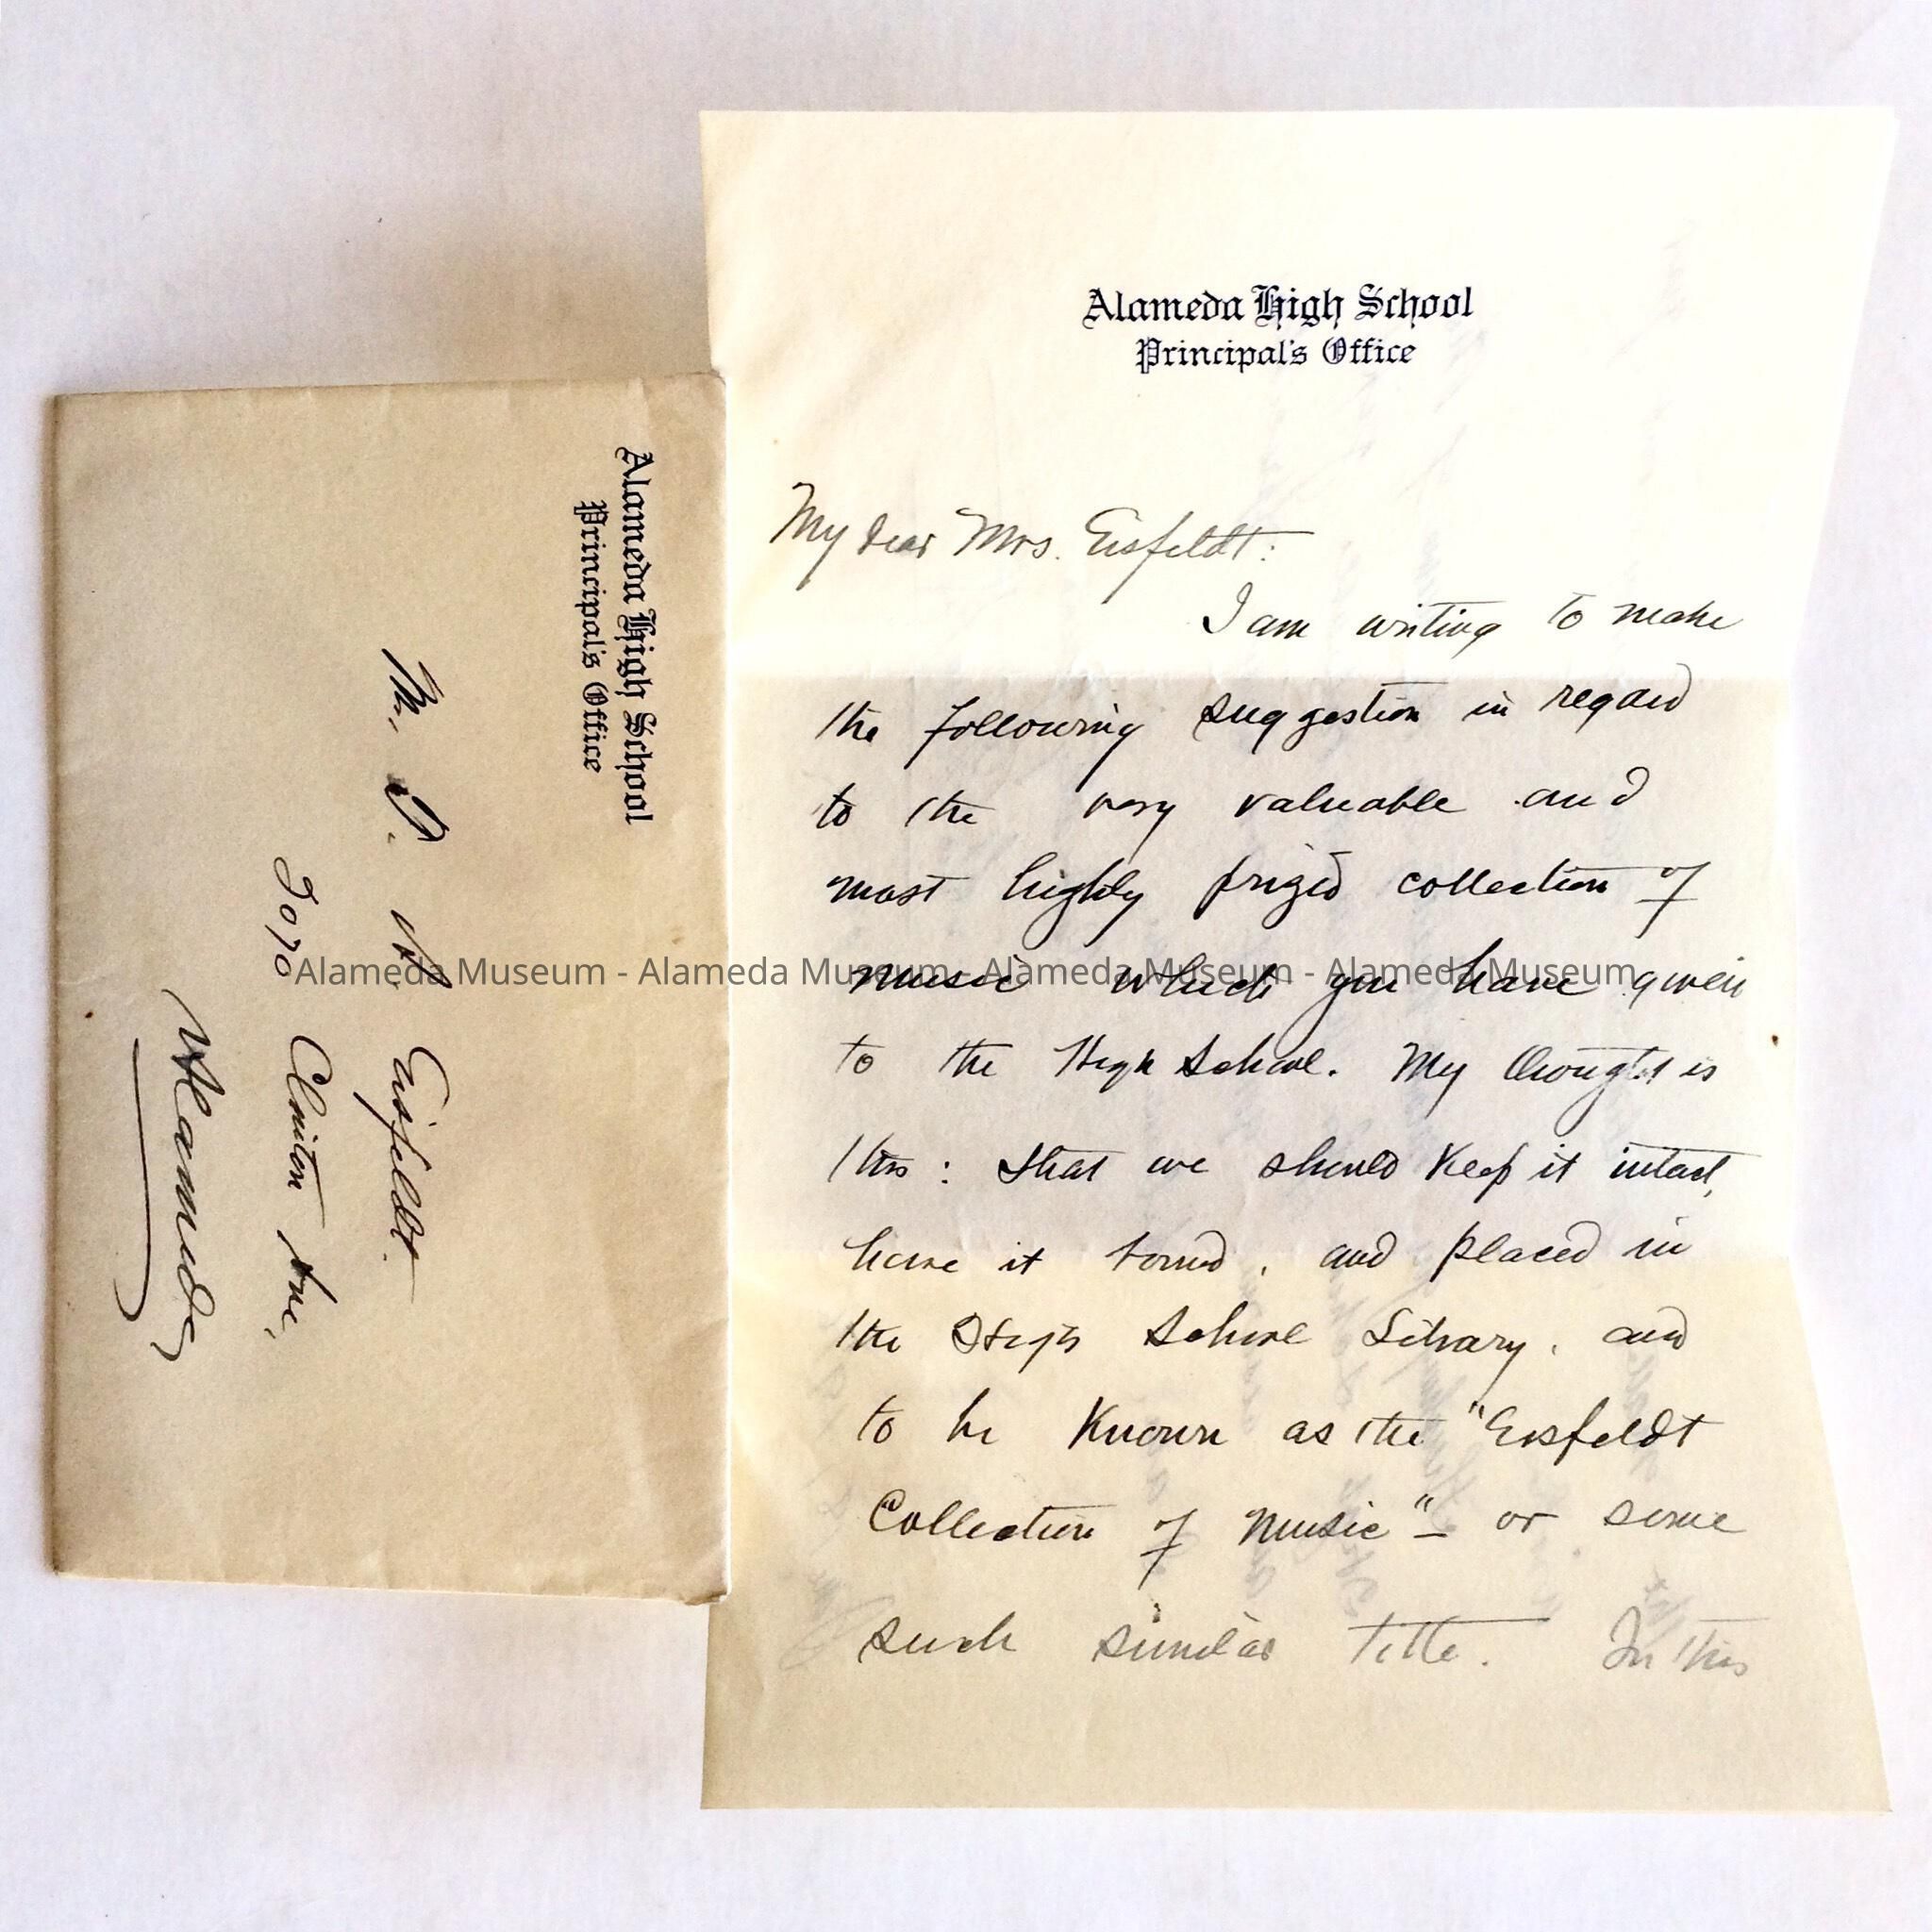 Alameda High School
Principal's Office
My dear Mrs. Eisfeldt:
I am writing to make
the following suggestion in regard
to the very valuable and
most highly prized collection of
music which you have given
to the High School. My thought is
this: that we should keep it intact,
have it bound, and placed in
the High School Library, and
to be known as the "Eisfeldt
Collection of Music" – or some
such similar title. In this
Alameda High School
Principal's Office
Eisfeldt
Clinton Ave,
Alameda
Alameda Museum - Alameda Museum - Alameda Museum - Alameda Museum